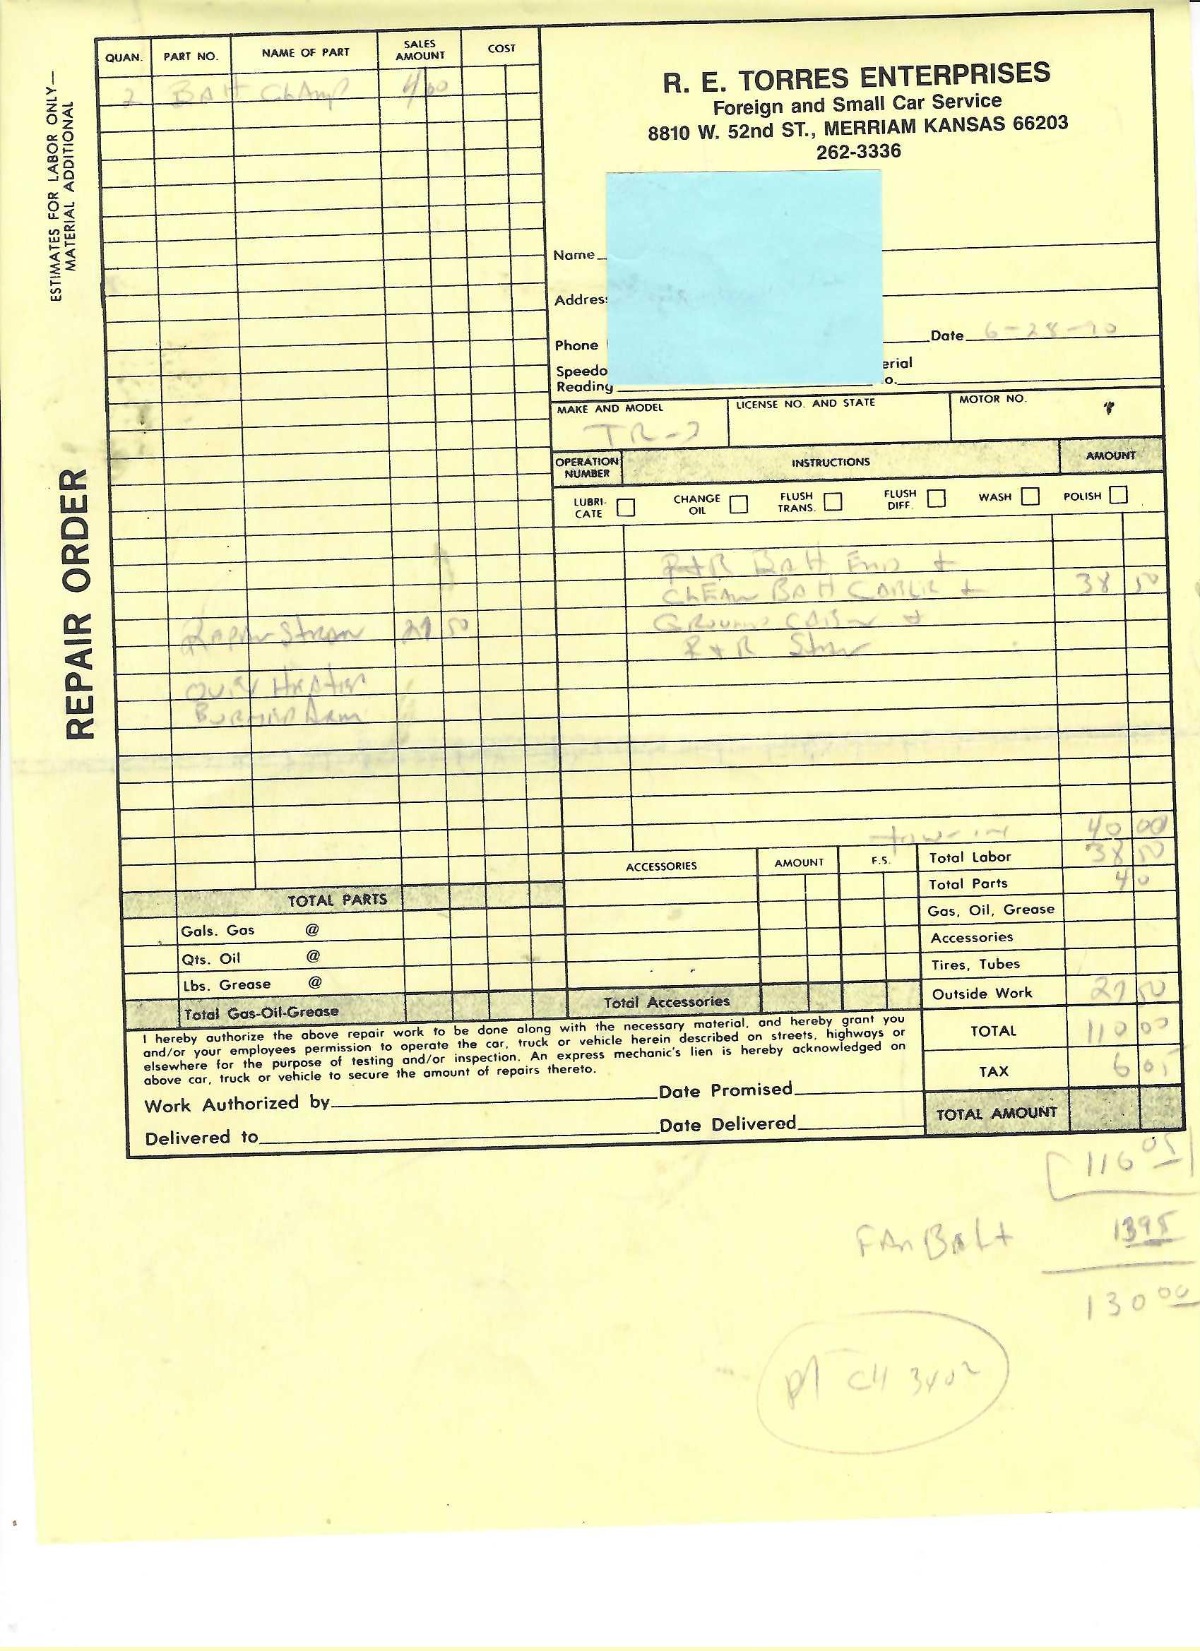 R. E. TORRES ENTERPRISES
Foreign and Small Car Service
8810 W. 52nd ST., MERRIAM KANSAS 66203
262-3336
ESTIMATES FOR LABOR ONLY—
MATERIAL ADDITIONAL
REPAIR ORDER
QUAN. PART NO. NAME OF PART SALES AMOUNT COST
2 BATT Clamp 4 00
Name
Address
Phone Date 6-28-90
Speedo
Reading
MAKE AND MODEL LICENSE NO. AND STATE MOTOR NO.
TR-7
OPERATION NUMBER INSTRUCTIONS AMOUNT
LUBRI-CATE CHANGE OIL FLUSH TRANS. FLUSH DIFF. WASH POLISH
R+R BATT End +
CLEAN BATT CABLE + 38 50
Ground +
R+R
27 50
tow-in 40 00
ACCESSORIES AMOUNT F.S. Total Labor 38 50
Total Parts 4 0
Gas, Oil, Grease
Accessories
Tires, Tubes
Outside Work 27 50
TOTAL 110 00
TAX 6 05
TOTAL AMOUNT
TOTAL PARTS
Gals. Gas @
Qts. Oil @
Lbs. Grease @
Total Gas-Oil-Grease Total Accessories
I hereby authorize the above repair work to be done along with the necessary material, and hereby grant you
and/or your employees permission to operate the car, truck or vehicle herein described on streets, highways or
elsewhere for the purpose of testing and/or inspection. An express mechanic's lien is hereby acknowledged on
above car, truck or vehicle to secure the amount of repairs thereto.
Work Authorized by Date Promised
Delivered to Date Delivered
116 05
FAN BELT 13 95
130 00